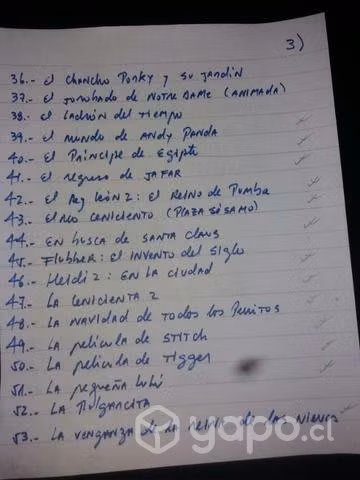 3)
36.- El Chancho Porky y su Jardin
37.- El Jorobado de NOTRE DAME (ANIMADA)
38.- El ladrón del tiempo
39.- El mundo de Andy Panda
40.- El Príncipe de Egipto
41.- El regreso de JAFAR
42.- El Rey León 2: El Reino de Pumba
43.- El No Ceniciento (PLAZA SÉSAMO)
44.- EN busca de SANTA Claus
45.- Flubber: El INVENTO del Siglo
46.- Heidi 2: EN LA CIUDAD
47.- LA CENICIENTA 2
48.- LA NAVIDAD de TODOS LOS Perritos
49.- LA película de STITCH
50.- LA película de Tigger
51.- LA pequeña Lulú
52.- LA Pulgarcita
53.- LA VENGANZA de la REINA de las Nieves
yapo.cl